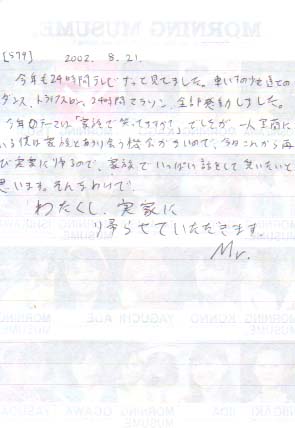 [579] 2002. 8. 21.
今年も24時間テレビずっと見てました。車いすの少女達の
ダンス、トライアスロン、24時間マラソン、全部感動しました。
今年のテーマは「家族で笑ってますか?」でしたが、一人
いる僕は家族とふれ合う機会がないので、今日これから再
び実家に帰るので、家族でいっぱい話をして笑いたいと
思います。そんなわけで、
わたくし、実家に
帰らせていただきます。
Mr.